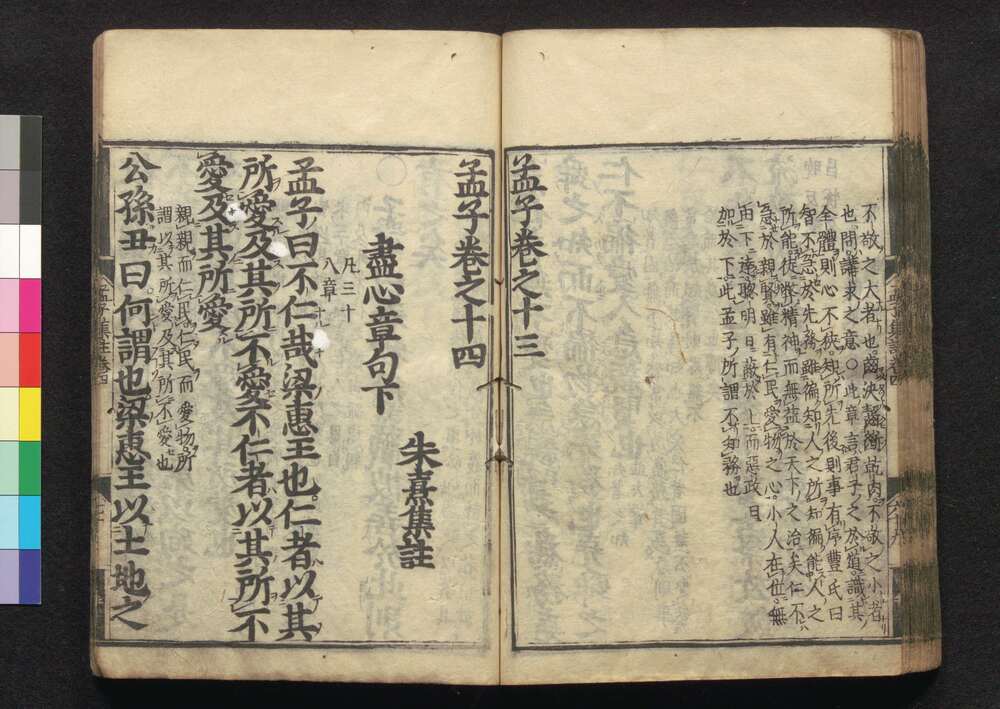 不敬之大者也齒決齧斷乾肉不敬之小者
也問講求之意○此章言君子之於道識其
全體則心不狹知所先後則事有序豐氏曰
智不急於先務雖徧知人之所知徧能人之
所能徒弊精神而無益於天下之治矣仁不
急於親賢雖有仁民愛物之心小人在位無
由下達聰明日蔽於上而惡政日
加於下此孟子所謂不知務也
孟子卷之十三
孟子卷之十四
朱熹集註
盡心章句下
凡三十
八章
孟子曰不仁哉梁惠王也仁者以其
所愛及其所不愛不仁者以其所不
愛及其所愛
親親而仁民仁民而愛物所
謂以其所愛及其所不愛也
公孫丑曰何謂也梁惠王以土地之